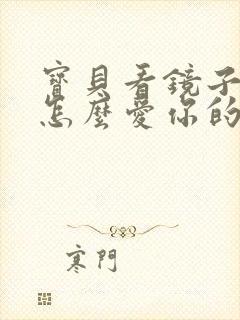 寶貝看鏡子
怎麼愛你的
寒門